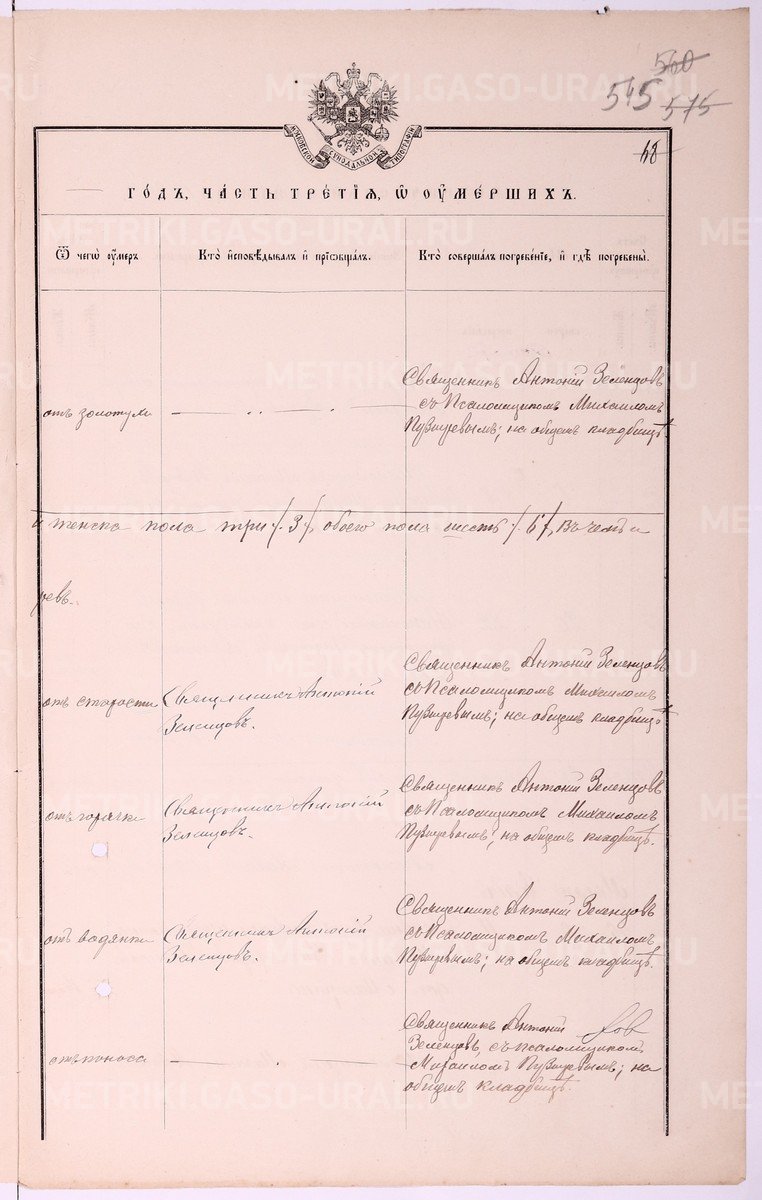 METRIKI.GASO-URAL.RU
560
545 575
МОСКОВСКОЙ СѴНОДАЛЬНОЙ ТИПОГРАФІИ
48
ГО́ДЪ, ЧА́СТЬ ТРЕ́ТІѦ, Ѡ҆ ОУ҆МЕ́РШИХЪ.
Ѿ чегѡ̀ оу҆́меръ
Кто̀ и҆сповѣ́дывалъ и҆ прїѡбща́лъ.
Кто̀ соверша́лъ погребе́нїе, и҆ гдѣ̀ погребены̀.
отъ золотухи
Священникъ Антоній Зеленцовъ
съ Псаломщикомъ Михаиломъ
Пузыревымъ; на общемъ кладбищѣ
и женска пола три /. 3 /, обоего пола шесть /. 6 /, въ чемъ и
отъ старости
Священникъ Антоній
Зеленцовъ.
Священникъ Антоній Зеленцовъ
съ Псаломщикомъ Михаиломъ
Пузыревымъ; на общемъ кладбищѣ
отъ горячки
Священникъ Антоній
Зеленцовъ.
Священникъ Антоній Зеленцовъ
съ Псаломщикомъ Михаиломъ
Пузыревымъ; на общемъ кладбищѣ.
отъ водянки
Священникъ Антоній
Зеленцовъ.
Священникъ Антоній Зеленцовъ
съ Псаломщикомъ Михаиломъ
Пузыревымъ; на общемъ кладбищѣ.
отъ поноса
Священникъ Антоній
Зеленцовъ, съ псаломщикомъ
Михаиломъ Пузыревымъ; на
общемъ кладбищѣ.